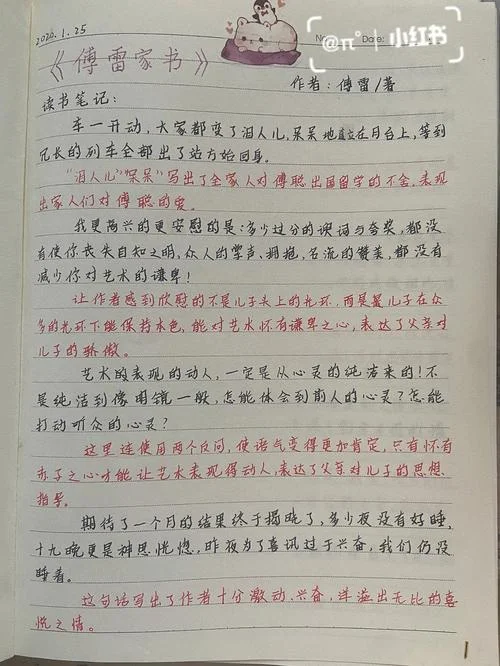 2020.1.25
No
Date:
@π° | 小红书
《傅雷家书》
作者：傅雷/著
读书笔记：
车一开动，大家都变了泪人儿，呆呆地直立在月台上，等到
冗长的列车全部出了站方始回身。
“泪人儿”“呆呆”写出了全家人对傅聪出国留学的不舍，表现
出家人们对傅聪的爱。
我更高兴的更安慰的是：多少过分的谀词与夸奖，都没
有使你丧失自知之明，众人的掌声、拥抱，名流的赞美，都没有
减少你对艺术的谦卑！
让作者感到欣慰的不是儿子头上的光环，而是是儿子在众
多的光环下能保持本色，能对艺术怀有谦卑之心，表达了父亲对
儿子的骄傲。
艺术的表现的动人，一定是从心灵的纯洁来的！不
是纯洁到像明镜一般，怎能体会到前人的心灵？怎能
打动听众的心灵？
这里连使用两个反问，使语气变得更加肯定，只有怀有
赤子之心才能让艺术表现得动人，表达了父亲对儿子的思想
指导。
期待了一个月的结果终于揭晓了，多少夜没有好睡，
十九晚更是神思恍惚，昨夜为了喜讯过于兴奋，我们仍没
睡着。
这句话写出了作者十分激动、兴奋，洋溢出无比的喜
悦之情。